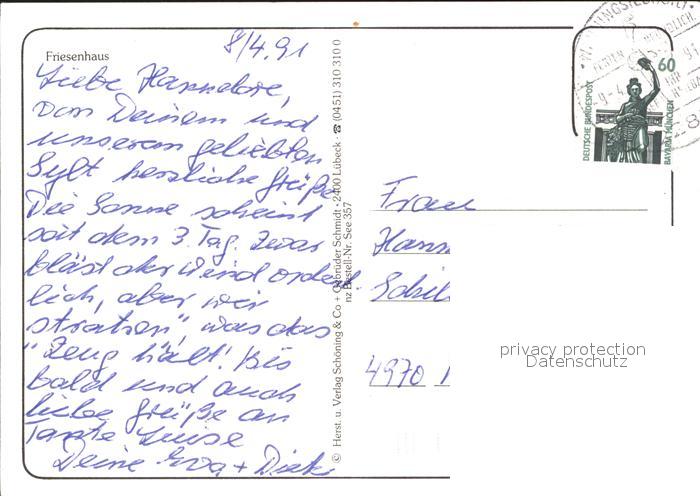 8/4.91
Friesenhaus
Liebe Hannelore,
von Deinem und
unserem geliebten
Sylt herzliche Grüße
Die Sonne scheint
seit dem 3. Tag. Zwar
bläst der Wind ordent-
lich, aber wir
"strahlen", was das
"Zeug hält! Bis
bald und auch
liebe Grüße an
Tante Luise
Deine Eva +
© Herst. u. Verlag Schöning & Co + Gebrüder Schmidt · 2400 Lübeck · ☎ (0451) 310 310 0
nz Bestell-Nr. See 357
60
DEUTSCHE BUNDESPOST
BAVARIA MÜNCHEN
Frau
Hann
Schil
4970
privacy protection
Datenschutz